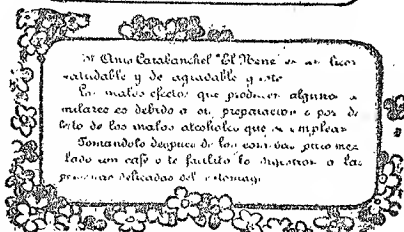 Anis Carabanchel "El Nene" es un licor
saludable y de agradable gusto
Los malos efectos que producen algunos
milares es debido a su preparacion o por de
los malos alcoholes que se emplean
Tomandolo despues de las comidas puro mez
lado con café o te facilita la digestion a las
personas delicadas del estomago